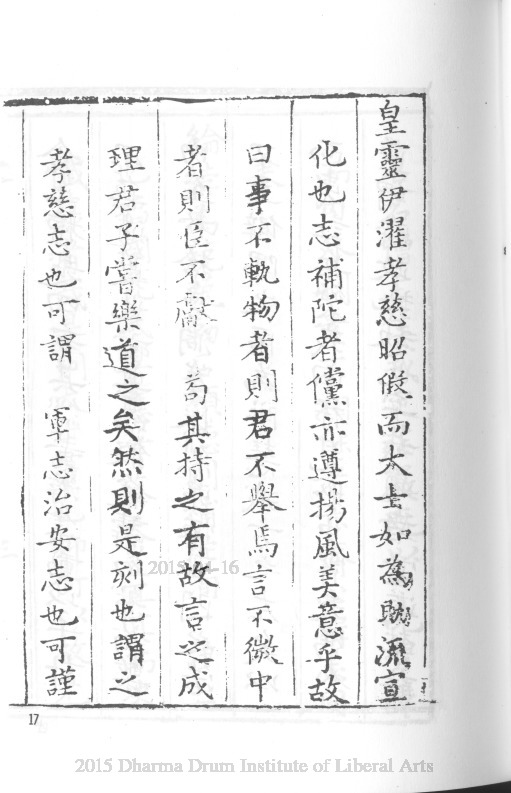 皇靈伊濯孝慈昭假而大士如為助流宣
化也志補陀者儻亦遵揚風美意乎故
曰事不軌物者則君不舉焉言不微中
者則臣不獻苟其持之有故言之成
理君子嘗樂道之矣然則是刻也謂之
孝慈志也可謂 軍志治安志也可謹
17
2015-04-16
2015 Dharma Drum Institute of Liberal Arts